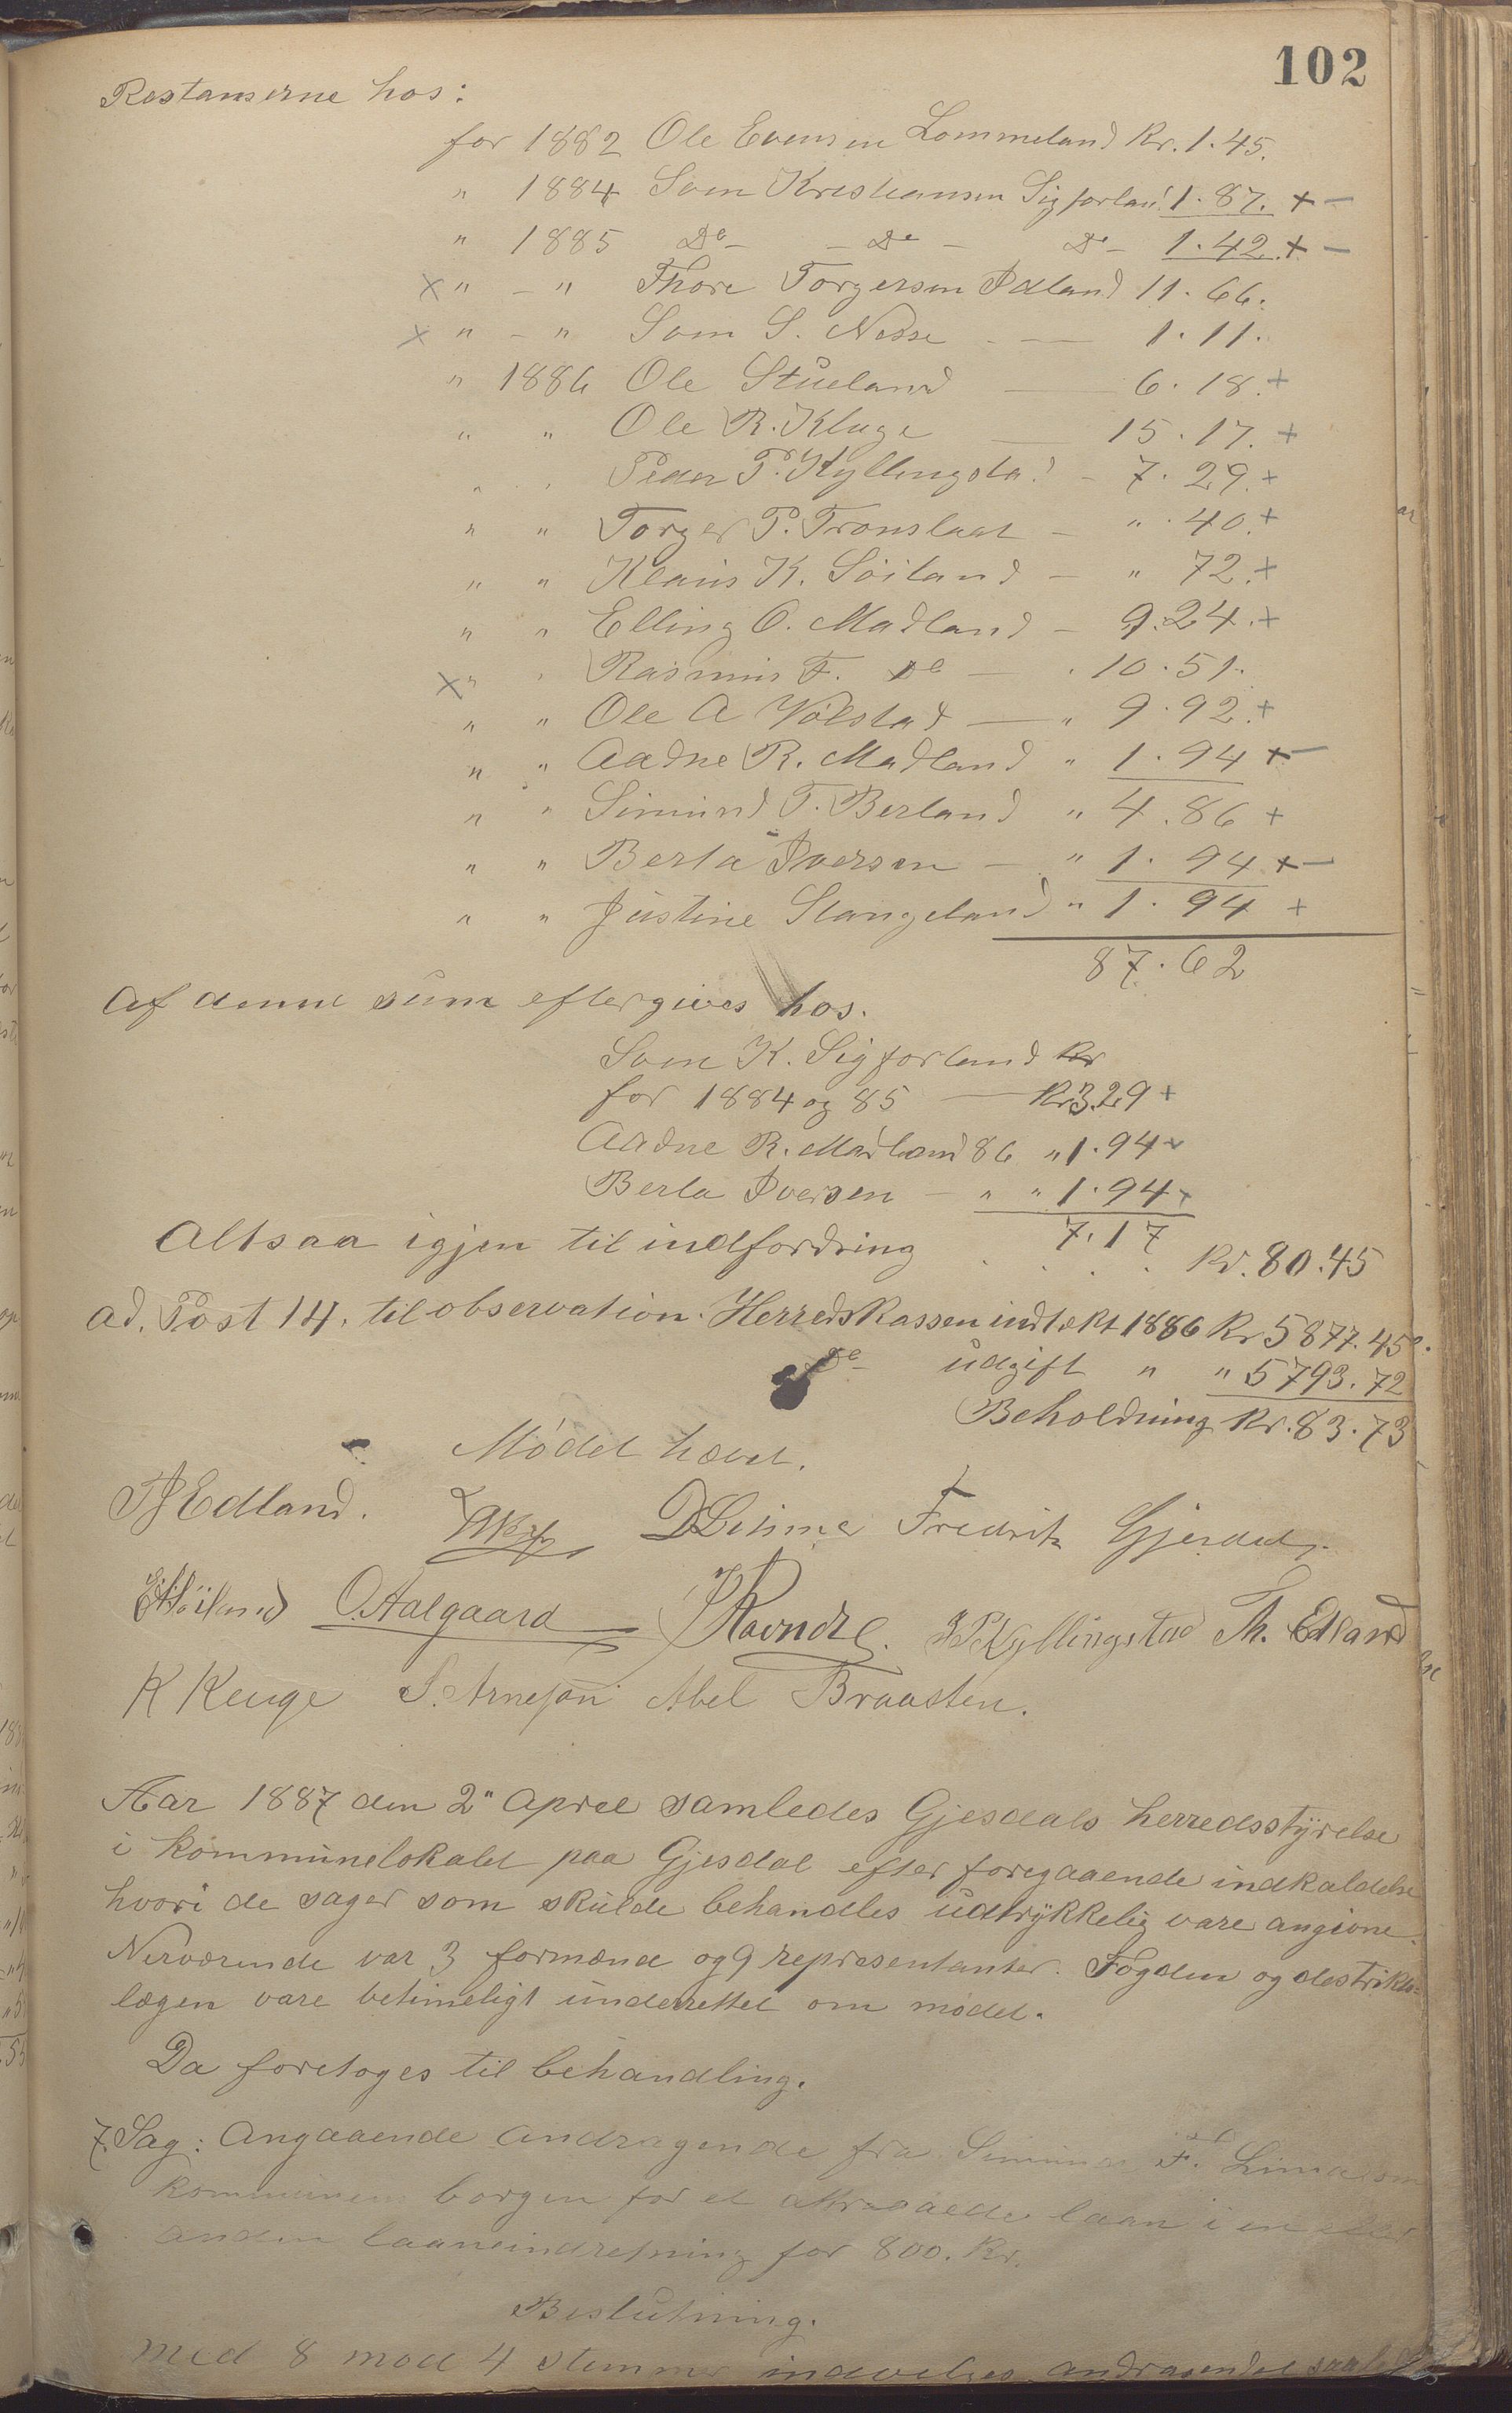 102
Restanserne hos:
for 1882 Ole Evensen Lommeland Kr. 1.45.
" 1884 Sven Kristiansen Sigforland 1.87. + –
" 1885 Do – – Do – Do – 1.42. + –
× " – " Thore Torgersen Ædland 11.66.
× " – " Sven S. Nesse – — 1.11.
" 1886 Ole Stueland — 6.18. +
" " Ole R. Kluge — 15.17. +
" " Peder P. Kyllingstad – 7.29. +
" " Torger P. Tronslaat – " .40. +
" " Klaus K. Söiland – " 72. +
" " Elling O. Madland – 9.24. +
× " " Rasmus F. Do — . 10.51.
" " Ole A Volstad — " 9.92. +
" " Aadne R. Madland " 1.94 + –
" " Simund T. Berland " 4.86 +
" " Berta Iversen – " 1.94 + –
" " Justine Stangeland " 1.94 +
87.62
Af denne sum eftergives hos.
Sven K. Sigforland Kr
for 1884 og 85 — Kr 3.29 +
Aadne R. Madland 86 " 1.94 +
Berta Iversen – " " 1.94 +
7.17
Altsaa igjen til indfordring . . . . Kr. 80.45
Ad. Post 14. til observation. Herredskassen indtekt 1886 Kr 5877.45
Do – udgift " " 5793.72
Beholdning Kr. 83.73
Mödet hævet.
TJ Edland. D Limme Fredrik Gjesdal.
E Höiland O. Aalgaard J Ravndal. J P Kyllingstad Th. Edland
K Kluge S. Arnesen Abel Braasten.
Aar 1887 den 2" April samledes Gjesdals herredsstyrelse
i kommunelokalet paa Gjesdal efter foregaaende indkaldelse
hvori de sager som skulde behandles udtrykkelig vare angivne.
Nerværende var 3 formænd og 9 representanter. Fogden og destrikts=
lægen vare betimeligt underrettet om mödet.
Da foretoges til behandling.
7. Sag: Angaaende andragende fra Simund F. Lima om
kommunens borgen for et laan i en eller
anden laaneindretning for 800. Kr.
Beslutning.
Med 8 mod 4 stemmer indvilges andragendet